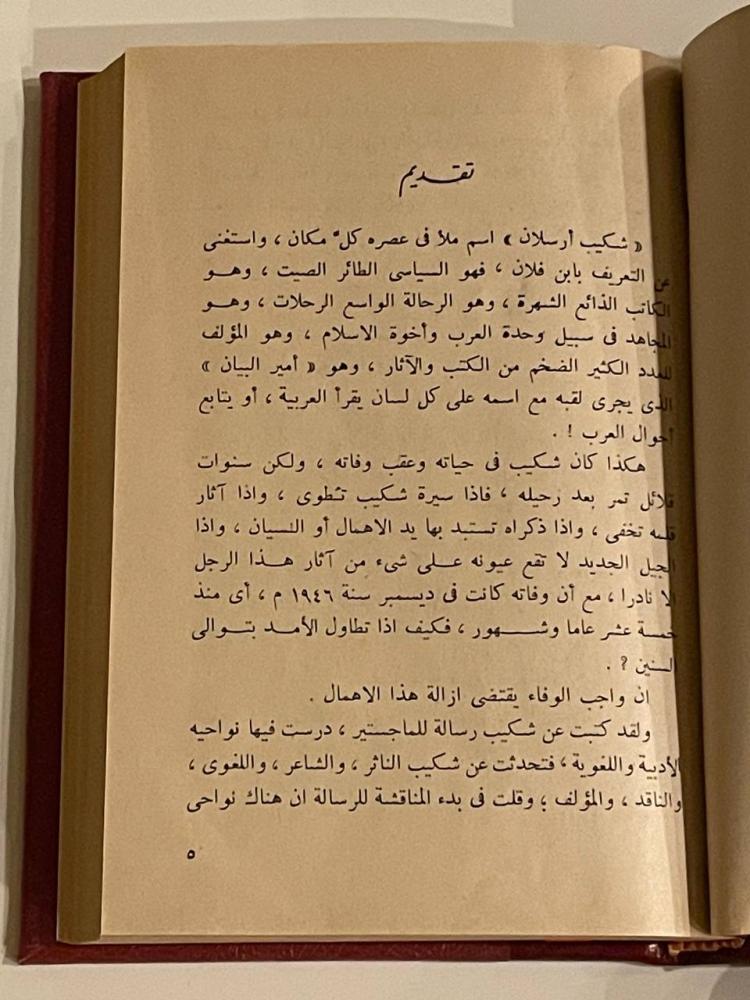 تقديم
« شكيب أرسلان » اسم ملأ فى عصره كلّ مكان ، واستغنى
عن التعريف بابن فلان ، فهو السياسى الطائر الصيت ، وهو
الكاتب الذائع الشهرة ، وهو الرحالة الواسع الرحلات ، وهو
المجاهد فى سبيل وحدة العرب وأخوة الاسلام ، وهو المؤلف
للعدد الكثير الضخم من الكتب والآثار ، وهو « أمير البيان »
الذى يجرى لقبه مع اسمه على كل لسان يقرأ العربية ، أو يتابع
أحوال العرب ! .
هكذا كان شكيب فى حياته وعقب وفاته ، ولكن سنوات
قلائل تمر بعد رحيله ، فاذا سيرة شكيب تُطوى ، واذا آثار
قلمه تخفى ، واذا ذكراه تستبد بها يد الاهمال أو النسيان ، واذا
الجيل الجديد لا تقع عيونه على شىء من آثار هذا الرجل
الا نادرا ، مع أن وفاته كانت فى ديسمبر سنة ١٩٤٦ م ، أى منذ
خمسة عشر عاما وشهور ، فكيف اذا تطاول الأمد بتوالى
السنين ? .
ان واجب الوفاء يقتضى ازالة هذا الاهمال .
ولقد كتبت عن شكيب رسالة للماجستير ، درست فيها نواحيه
الأدبية واللغوية ، فتحدثت عن شكيب الناثر ، والشاعر ، واللغوى ،
والناقد ، والمؤلف ؛ وقلت فى بدء المناقشة للرسالة ان هناك نواحى
٥